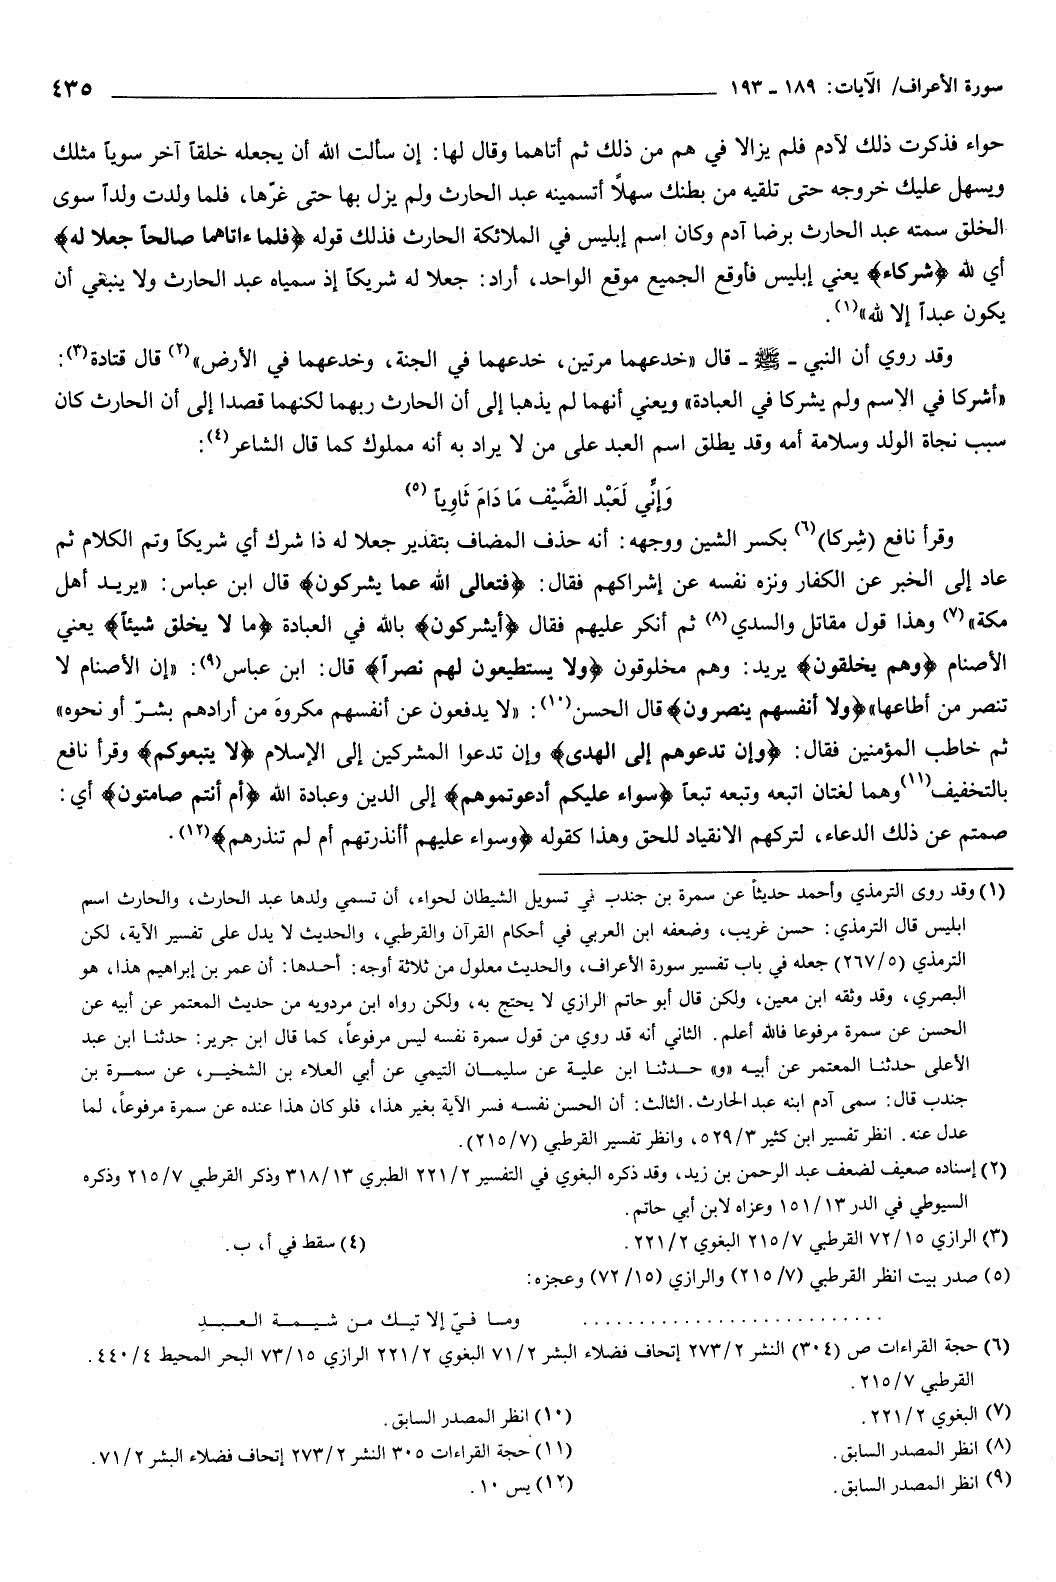 سورة الأعراف/ الآيات: ١٨٩ ـ ١٩٣ ٤٣٥
حواء فذكرت ذلك لآدم فلم يزالا في هم من ذلك ثم أتاهما وقال لها: إن سألت الله أن يجعله خلقاً آخر سوياً مثلك
ويسهل عليك خروجه حتى تلقيه من بطنك سهلًا أتسمينه عبد الحارث ولم يزل بها حتى غرّها، فلما ولدت ولداً سوى
الخلق سمته عبد الحارث برضا آدم وكان اسم إبليس في الملائكة الحارث فذلك قوله ﴿فلما ءاتاهما صالحاً جعلا له﴾
أي لله ﴿شركاء﴾ يعني إبليس فأوقع الجميع موقع الواحد، أراد: جعلا له شريكاً إذ سمياه عبد الحارث ولا ينبغي أن
يكون عبداً إلا لله»(١).
وقد روي أن النبي ـ ﷺ ـ قال «خدعهما مرتين، خدعهما في الجنة، وخدعهما في الأرض»(٢) قال قتادة(٣):
«أشركا في الاسم ولم يشركا في العبادة» ويعني أنهما لم يذهبا إلى أن الحارث ربهما لكنهما قصدا إلى أن الحارث كان
سبب نجاة الولد وسلامة أمه وقد يطلق اسم العبد على من لا يراد به أنه مملوك كما قال الشاعر(٤):
وَإِنِّي لَعَبْد الضَّيْف مَا دَامَ ثَاوِياً (٥)
وقرأ نافع (شِركا)(٦) بكسر الشين ووجهه: أنه حذف المضاف بتقدير جعلا له ذا شرك أي شريكاً وتم الكلام ثم
عاد إلى الخبر عن الكفار ونزه نفسه عن إشراكهم فقال: ﴿فتعالى الله عما يشركون﴾ قال ابن عباس: «يريد أهل
مكة»(٧) وهذا قول مقاتل والسدي(٨) ثم أنكر عليهم فقال ﴿أيشركون﴾ بالله في العبادة ﴿ما لا يخلق شيئاً﴾ يعني
الأصنام ﴿وهم يخلقون﴾ يريد: وهم مخلوقون ﴿ولا يستطيعون لهم نصراً﴾ قال: ابن عباس(٩): «إن الأصنام لا
تنصر من أطاعها»﴿ولا أنفسهم ينصرون﴾ قال الحسن(١٠): «لا يدفعون عن أنفسهم مكروهَ من أرادهم بشرّ أو نحوه»
ثم خاطب المؤمنين فقال: ﴿وإن تدعوهم إلى الهدى﴾ وإن تدعوا المشركين إلى الإسلام ﴿لا يتبعوكم﴾ وقرأ نافع
بالتخفيف(١١) وهما لغتان اتبعه وتبعه تبعاً ﴿سواء عليكم أدعوتموهم﴾ إلى الدين وعبادة الله ﴿أم أنتم صامتون﴾ أي:
صمتم عن ذلك الدعاء، لتركهم الانقياد للحق وهذا كقوله ﴿وسواء عليهم أأنذرتهم أم لم تنذرهم﴾(١٢).
(١) وقد روى الترمذي وأحمد حديثاً عن سمرة بن جندب في تسويل الشيطان لحواء، أن تسمي ولدها عبد الحارث، والحارث اسم
ابليس قال الترمذي: حسن غريب، وضعفه ابن العربي في أحكام القرآن والقرطبي، والحديث لا يدل على تفسير الآية، لكن
الترمذي (٢٦٧/٥) جعله في باب تفسير سورة الأعراف، والحديث معلول من ثلاثة أوجه: أحدها: أن عمر بن إبراهيم هذا، هو
البصري، وقد وثقه ابن معين، ولكن قال أبو حاتم الرازي لا يحتج به، ولكن رواه ابن مردويه من حديث المعتمر عن أبيه عن
الحسن عن سمرة مرفوعا فالله أعلم. الثاني أنه قد روي من قول سمرة نفسه ليس مرفوعاً، كما قال ابن جرير: حدثنا ابن عبد
الأعلى حدثنا المعتمر عن أبيه «و» حدثنا ابن علية عن سليمان التيمي عن أبي العلاء بن الشخير، عن سمرة بن
جندب قال: سمى آدم ابنه عبد الحارث. الثالث: أن الحسن نفسه فسر الآية بغير هذا، فلو كان هذا عنده عن سمرة مرفوعاً، لما
عدل عنه. انظر تفسير ابن كثير ٥٢٩/٣، وانظر تفسير القرطبي (٢١٥/٧).
(٢) إسناده صعيف لضعف عبد الرحمن بن زيد، وقد ذكره البغوي في التفسير ٢٢١/٢ الطبري ٣١٨/١٣ وذكر القرطبي ٢١٥/٧ وذكره
السيوطي في الدر ١٥١/١٣ وعزاه لابن أبي حاتم.
(٣) الرازي ٧٢/١٥ القرطبي ٢١٥/٧ البغوي ٢٢١/٢. (٤) سقط في أ، ب.
(٥) صدر بيت انظر القرطبي (٢١٥/٧) والرازي (٧٢/١٥) وعجزه:
........................... وما فيّ إلا تيك من شيمة العبدِ
(٦) حجة القراءات ص (٣٠٤) النشر ٢٧٣/٢ إتحاف فضلاء البشر ٧١/٢ البغوي ٢٢١/٢ الرازي ٧٣/١٥ البحر المحيط ٤٤٠/٤.
القرطبي ٢١٥/٧.
(٧) البغوي ٢٢١/٢. (١٠) انظر المصدر السابق.
(٨) انظر المصدر السابق. (١١) حجة القراءات ٣٠٥ النشر ٢٧٣/٢ إتحاف فضلاء البشر ٧١/٢.
(٩) انظر المصدر السابق. (١٢) يس ١٠.